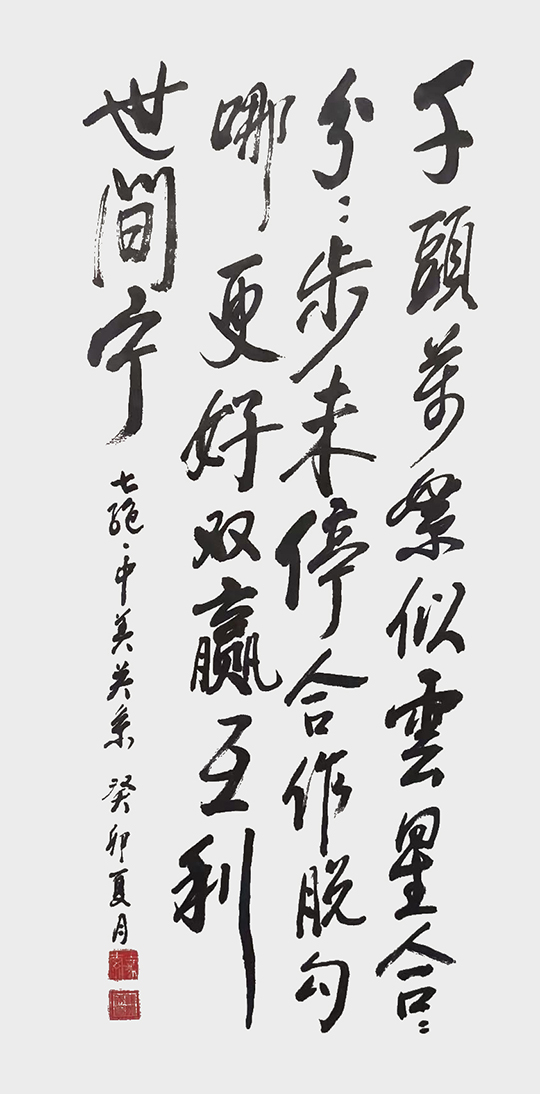 千頭萬絮似雲星合〻
分〻步未停合作脱勾
哪更好双赢互利
世間宁
七絕·中美关系 癸卯夏月